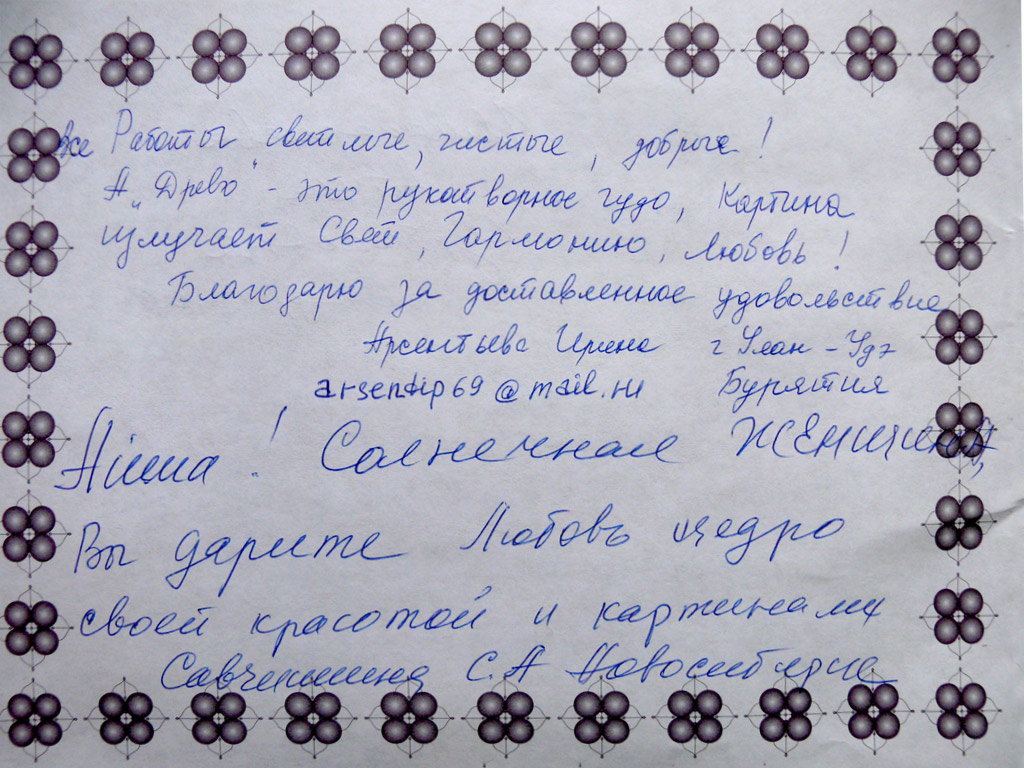 все Работы светлые, чистые, добрые!
А „Древо" - это рукотворное чудо, Картина
излучает Свет, Гармонию, Любовь!
Благодарю за доставленное удовольствие
Арсентьева Ирина г Улан-Удэ
@mail.ru Бурятия
! Солнечная ЖЕНЩИНА,
Вы дарите Любовь щедро
своей красотой и картинами
С.А